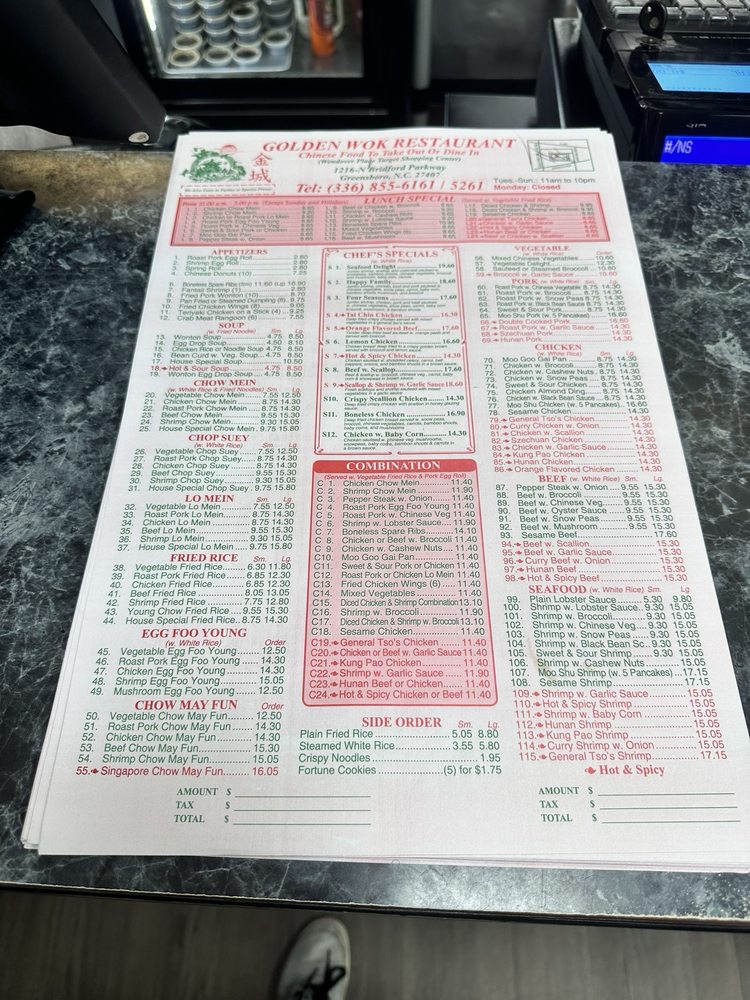 GOLDEN WOK RESTAURANT
金城
Chinese Food To Take Out Or Dine In
(Wendover Place Target Shopping Center)
1216-N Bridford Parkway
Greensboro, N.C. 27407
Tel: (336) 855-6161 / 5261
Tues.-Sun.: 11am to 10pm
Monday: Closed
LUNCH SPECIAL
(Served w. Vegetable Fried Rice)
APPETIZERS
1. Roast Pork Egg Roll 2.60
2. Shrimp Egg Roll 2.80
3. Spring Roll 2.80
4. Chinese Donuts (10) 7.25
6. Boneless Spare Ribs (Sm) 11.60 (Lg) 16.90
7. Fantail Shrimp (1)
8. Fried Pork Wonton (10) 8.70
9. Pan Fried or Steamed Dumpling (8) 9.75
10. Fried Chicken Wings (8) 9.05
11. Teriyaki Chicken on a Stick (4) 9.25
12. Crab Meat Rangoon (6) 7.55
SOUP
(w. Fried Noodle) Sm. Lg.
13. Wonton Soup 4.75 8.50
14. Egg Drop Soup 4.50 8.10
15. Chicken Rice or Noodle Soup 4.75 8.50
16. Bean Curd w. Veg. Soup 4.75 8.50
17. House Special Soup 10.50
18. Hot & Sour Soup 4.75 8.50
19. Wonton Egg Drop Soup 4.75 8.50
CHOW MEIN
(w. White Rice & Fried Noodles) Sm. Lg.
20. Vegetable Chow Mein 7.55 12.50
21. Chicken Chow Mein 8.75 14.30
22. Roast Pork Chow Mein 8.75 14.30
23. Beef Chow Mein 9.55 15.30
24. Shrimp Chow Mein 9.30 15.05
25. House Special Chow Mein 9.75 15.80
CHOP SUEY
(w. White Rice) Sm. Lg.
26. Vegetable Chop Suey 7.55 12.50
27. Roast Pork Chop Suey 8.75 14.30
28. Chicken Chop Suey 8.75 14.30
29. Beef Chop Suey 9.55 15.30
30. Shrimp Chop Suey 9.30 15.05
31. House Special Chop Suey 9.75 15.80
LO MEIN Sm. Lg.
32. Vegetable Lo Mein 7.55 12.50
33. Roast Pork Lo Mein 8.75 14.30
34. Chicken Lo Mein 8.75 14.30
35. Beef Lo Mein 9.55 15.30
36. Shrimp Lo Mein 9.30 15.05
37. House Special Lo Mein 9.75 15.80
FRIED RICE Sm. Lg.
38. Vegetable Fried Rice 6.30 11.80
39. Roast Pork Fried Rice 6.85 12.30
40. Chicken Fried Rice 6.85 12.30
41. Beef Fried Rice 8.05 13.05
42. Shrimp Fried Rice 7.75 12.80
43. Young Chow Fried Rice 9.55 15.30
44. House Special Fried Rice 8.75 14.30
EGG FOO YOUNG
(w. White Rice) Order
45. Vegetable Egg Foo Young 12.50
46. Roast Pork Egg Foo Young 14.30
47. Chicken Egg Foo Young 14.30
48. Shrimp Egg Foo Young 15.05
49. Mushroom Egg Foo Young 12.50
CHOW MAY FUN Order
50. Vegetable Chow May Fun 12.50
51. Roast Pork Chow May Fun 14.30
52. Chicken Chow May Fun 14.30
53. Beef Chow May Fun 15.30
54. Shrimp Chow May Fun 15.05
55. Singapore Chow May Fun 16.05
AMOUNT $
TAX $
TOTAL $
CHEF'S SPECIALS
(w. White Rice)
S 1. Seafood Delight 19.60
S 2. Happy Family 18.60
S 3. Four Seasons 17.60
S 4. Tai Chin Chicken 14.30
S 5. Orange Flavored Beef 17.60
S 6. Lemon Chicken 16.60
S 7. Hot & Spicy Chicken 14.30
S 8. Beef w. Scallop 17.60
S 9. Scallop & Shrimp w. Garlic Sauce 18.60
S10. Crispy Scallion Chicken 14.30
S11. Boneless Chicken 16.90
S12. Chicken w. Baby Corn 14.30
COMBINATION
(Served w. Vegetable Fried Rice & Pork Egg Roll)
C 1. Chicken Chow Mein 11.40
C 2. Shrimp Chow Mein 11.90
C 3. Pepper Steak w. Onion 11.40
C 4. Roast Pork Egg Foo Young 11.40
C 5. Roast Pork w. Chinese Veg 11.40
C 6. Shrimp w. Lobster Sauce 11.90
C 7. Boneless Spare Ribs 14.10
C 8. Chicken or Beef w. Broccoli 11.40
C 9. Chicken w. Cashew Nuts 11.40
C10. Moo Goo Gai Pan 11.40
C11. Sweet & Sour Pork or Chicken 11.40
C12. Roast Pork or Chicken Lo Mein 11.40
C13. Fried Chicken Wings (6) 11.40
C14. Mixed Vegetables 11.40
C15. Diced Chicken & Shrimp Combination 13.10
C16. Shrimp w. Broccoli 11.90
C17. Diced Chicken & Shrimp w. Broccoli 13.10
C18. Sesame Chicken 11.40
C19. General Tso's Chicken 11.40
C20. Chicken or Beef w. Garlic Sauce 11.40
C21. Kung Pao Chicken 11.40
C22. Shrimp w. Garlic Sauce 11.90
C23. Hunan Beef or Chicken 11.40
C24. Hot & Spicy Chicken or Beef 11.40
SIDE ORDER Sm. Lg.
Plain Fried Rice 5.05 8.80
Steamed White Rice 3.55 5.80
Crispy Noodles 1.95
Fortune Cookies (5) for $1.75
VEGETABLE
(w. White Rice) Order
56. Mixed Chinese Vegetables 10.60
57. Vegetables Delight 12.30
58. Sauteed or Steamed Broccoli 10.80
59. Broccoli w. Garlic Sauce 10.60
PORK (w. White Rice) Sm. Lg.
60. Roast Pork w. Chinese Vegetable 8.75 14.30
61. Roast Pork w. Broccoli 8.75 14.30
62. Roast Pork w. Snow Peas 8.75 14.30
63. Roast Pork w. Black Bean Sauce 8.75 14.30
64. Sweet & Sour Pork 8.75 14.30
65. Moo Shu Pork (w. 5 Pancakes) 16.60
66. Double Cooked Pork 14.30
67. Roast Pork w. Garlic Sauce 14.30
68. Szechuan Pork 14.30
69. Hunan Pork 14.30
CHICKEN
(w. White Rice) Sm. Lg.
70. Moo Goo Gai Pan 8.75 14.30
71. Chicken w. Broccoli 8.75 14.30
72. Chicken w. Cashew Nuts 8.75 14.30
73. Chicken w. Snow Peas 8.75 14.30
74. Sweet & Sour Chicken 8.75 14.30
75. Chicken Almond Ding 8.75 14.30
76. Chicken w. Black Bean Sauce 8.75 14.30
77. Moo Shu Chicken (w. 5 Pancakes) 16.60
78. Sesame Chicken 14.30
79. General Tso's Chicken 14.30
80. Curry Chicken w. Onion 14.30
81. Chicken w. Scallion 14.30
82. Szechuan Chicken 14.30
83. Chicken w. Garlic Sauce 14.30
84. Kung Pao Chicken 14.30
85. Hunan Chicken 14.30
86. Orange Flavored Chicken 14.30
BEEF (w. White Rice) Sm. Lg.
87. Pepper Steak w. Onion 9.55 15.30
88. Beef w. Broccoli 9.55 15.30
89. Beef w. Chinese Veg. 9.55 15.30
90. Beef w. Oyster Sauce 9.55 15.30
91. Beef w. Snow Peas 9.55 15.30
92. Beef w. Mushroom 9.55 15.30
93. Sesame Beef 17.60
94. Beef w. Scallion 15.30
95. Beef w. Garlic Sauce 15.30
96. Curry Beef w. Onion 15.30
97. Hunan Beef 15.30
98. Hot & Spicy Beef 15.30
SEAFOOD (w. White Rice) Sm. Lg.
99. Plain Lobster Sauce 5.30 9.80
100. Shrimp w. Lobster Sauce 9.30 15.05
101. Shrimp w. Broccoli 9.30 15.05
102. Shrimp w. Chinese Veg. 9.30 15.05
103. Shrimp w. Snow Peas 9.30 15.05
104. Shrimp w. Black Bean Sc. 9.30 15.05
105. Sweet & Sour Shrimp 9.30 15.05
106. Shrimp w. Cashew Nuts 15.05
107. Moo Shu Shrimp (w. 5 Pancakes) 17.15
108. Sesame Shrimp 17.15
109. Shrimp w. Garlic Sauce 15.05
110. Hot & Spicy Shrimp 15.05
111. Shrimp w. Baby Corn 15.05
112. Hunan Shrimp 15.05
113. Kung Pao Shrimp 15.05
114. Curry Shrimp w. Onion 15.05
115. General Tso's Shrimp 17.15
Hot & Spicy
AMOUNT $
TAX $
TOTAL $
#/NS